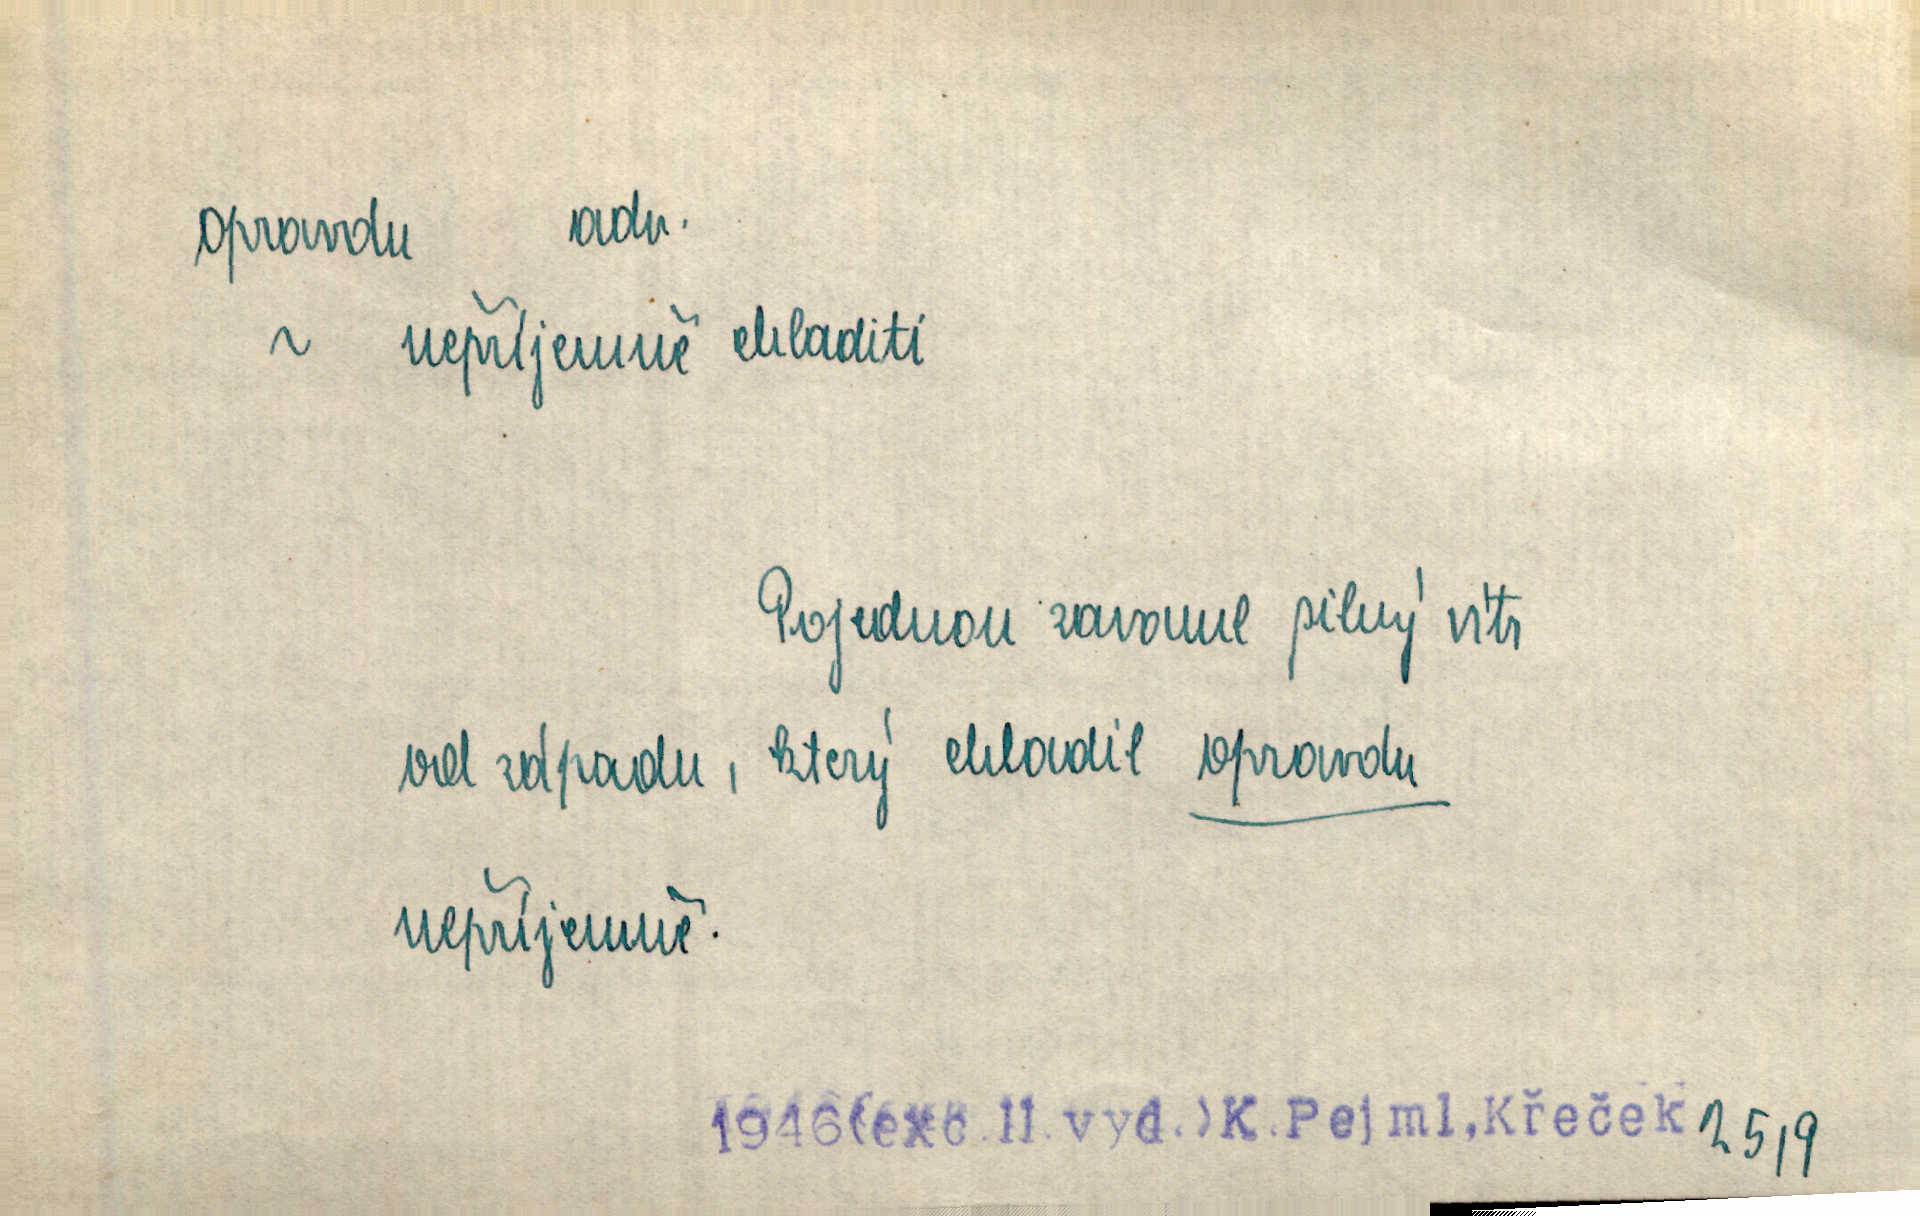 opravdu adv.
~ nepříjemně chladiti
Pojednou zavanul silný vítr
od západu, který chladil opravdu
nepříjemně.
1946(exc.II.vyd.)K.Pejml,Křeček 25,9